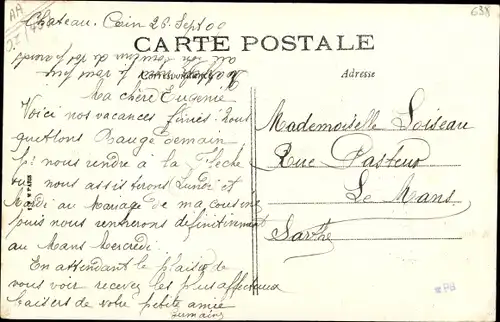 Château. 26 Sept 00
CARTE POSTALE
Correspondance
Adresse
Ma chère Eugénie
Voici nos vacances finies. nous
quittons Baugé demain
nous rendre à la Flèche
nous assisterons Lundi et
Mardi au Mariage de ma cousine
puis nous rentrerons définitivement
au Mans Mercredi.
En attendant le plaisir de
vous voir recevez les plus affectueux
baisers de votre petite amie
Mademoiselle Loiseau
Rue Pasteur
Le Mans
Sarthe
638
PB